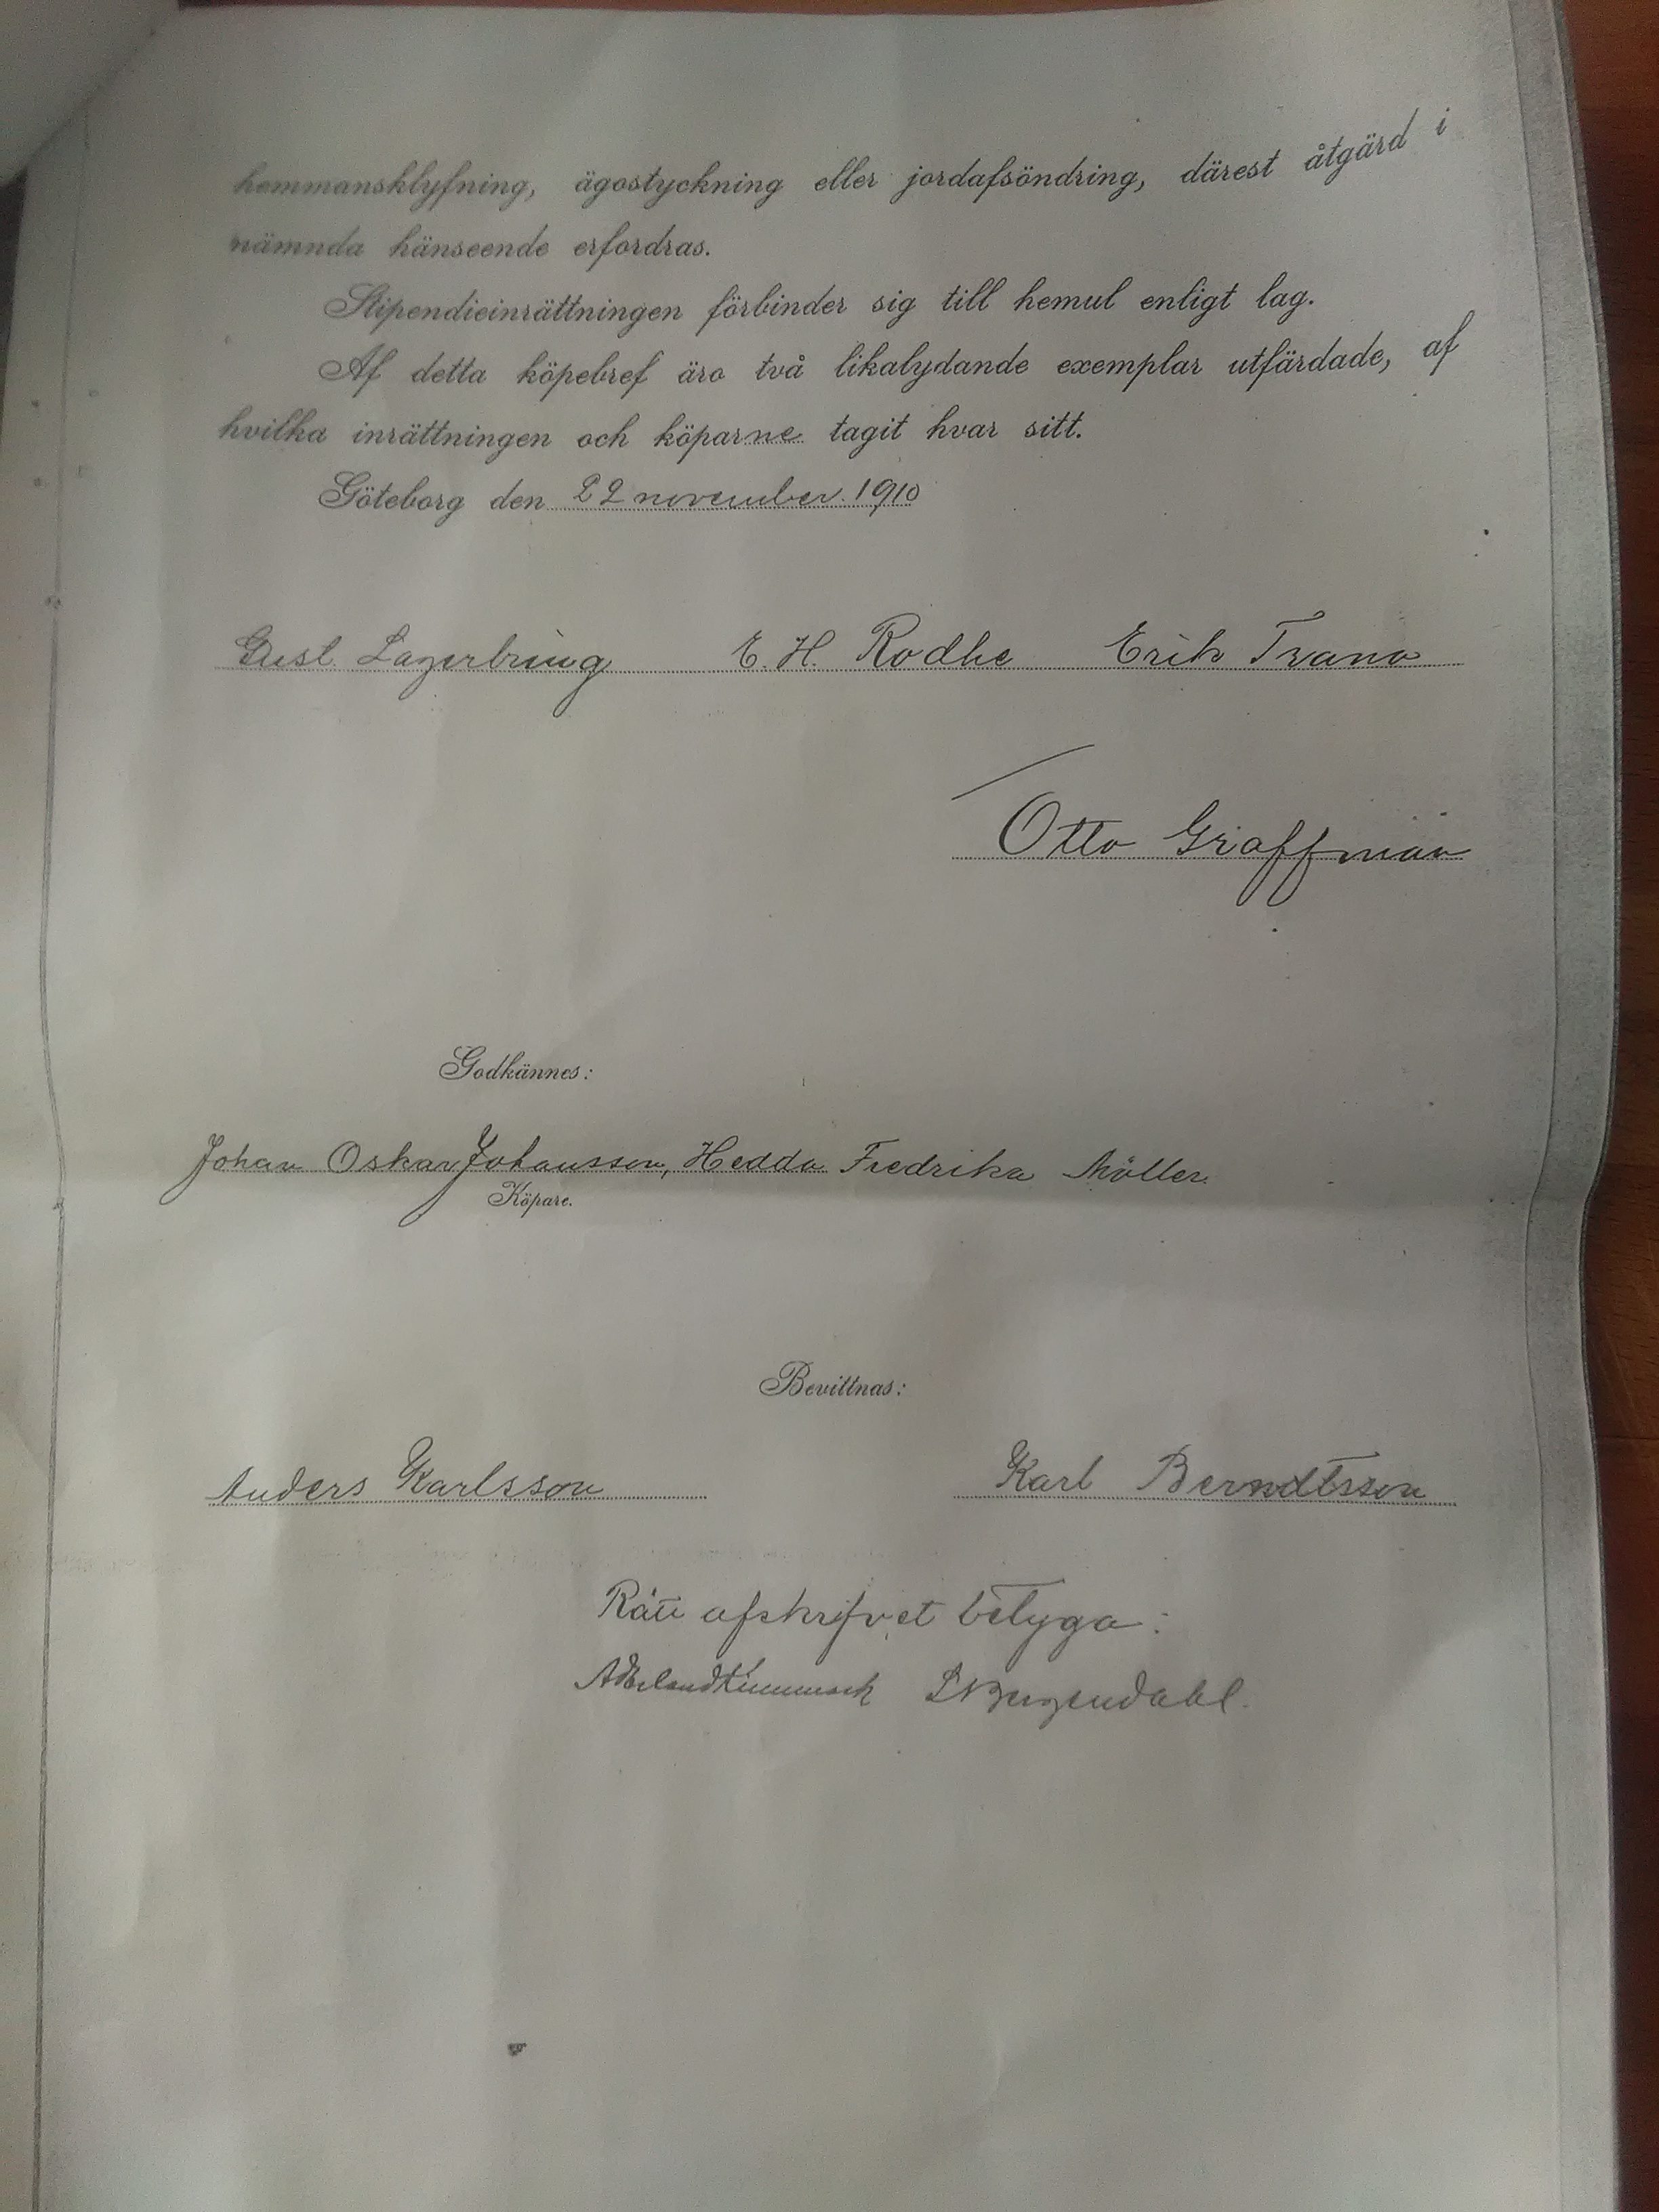 hemmansklyfning, ägostyckning eller jordafsöndring, därest åtgärd i
nämnda hänseende erfordras.
Stipendieinrättningen förbinder sig till hemul enligt lag.
Af detta köpebref äro två likalydande exemplar utfärdade, af
hvilka inrättningen och köparne tagit hvar sitt.
Göteborg den 22 november 1910
Gust. Lagerbring E. H. Rodhe Erik Trana
Otto Graffman
Godkännes:
Johan Oskar Johansson, Hedda Fredrika Möller
Köpare.
Bevittnas:
Anders Karlsson Karl Berndtsson
Rätt afskrifvet betyga: